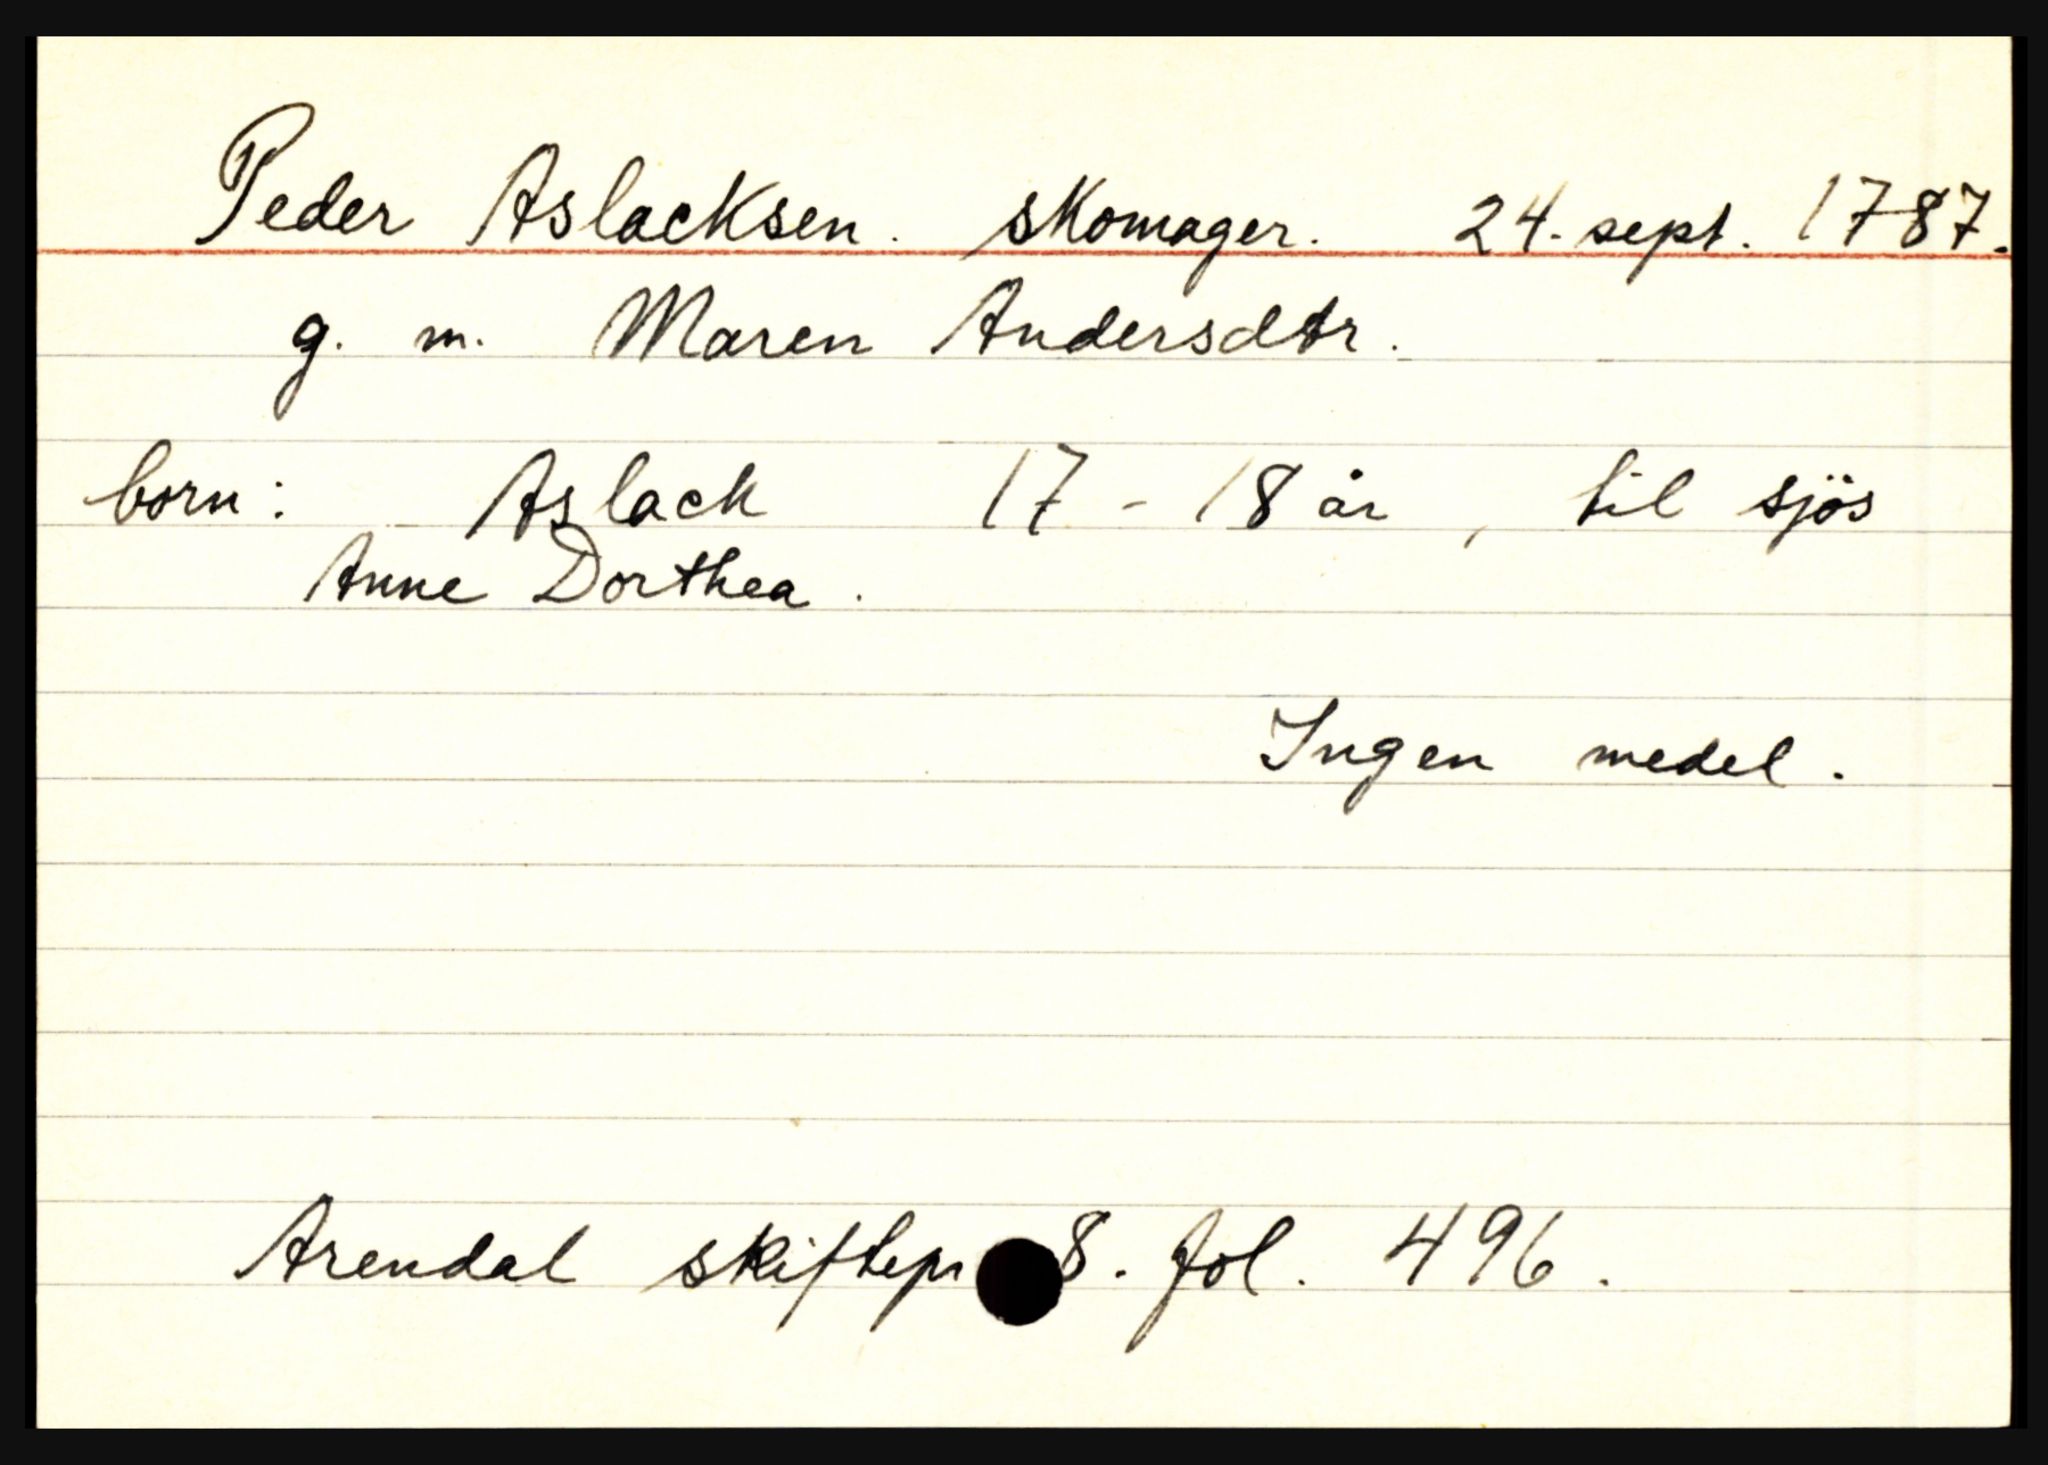 Peder Aslacksen. skomager. 24. sept. 1787.
g. m. Maren Andersdtr.
born: Aslack 17 - 18 år, til sjös
Anne Dorthea.
Ingen medel.
Arendal skiftepr 8. fol. 496.